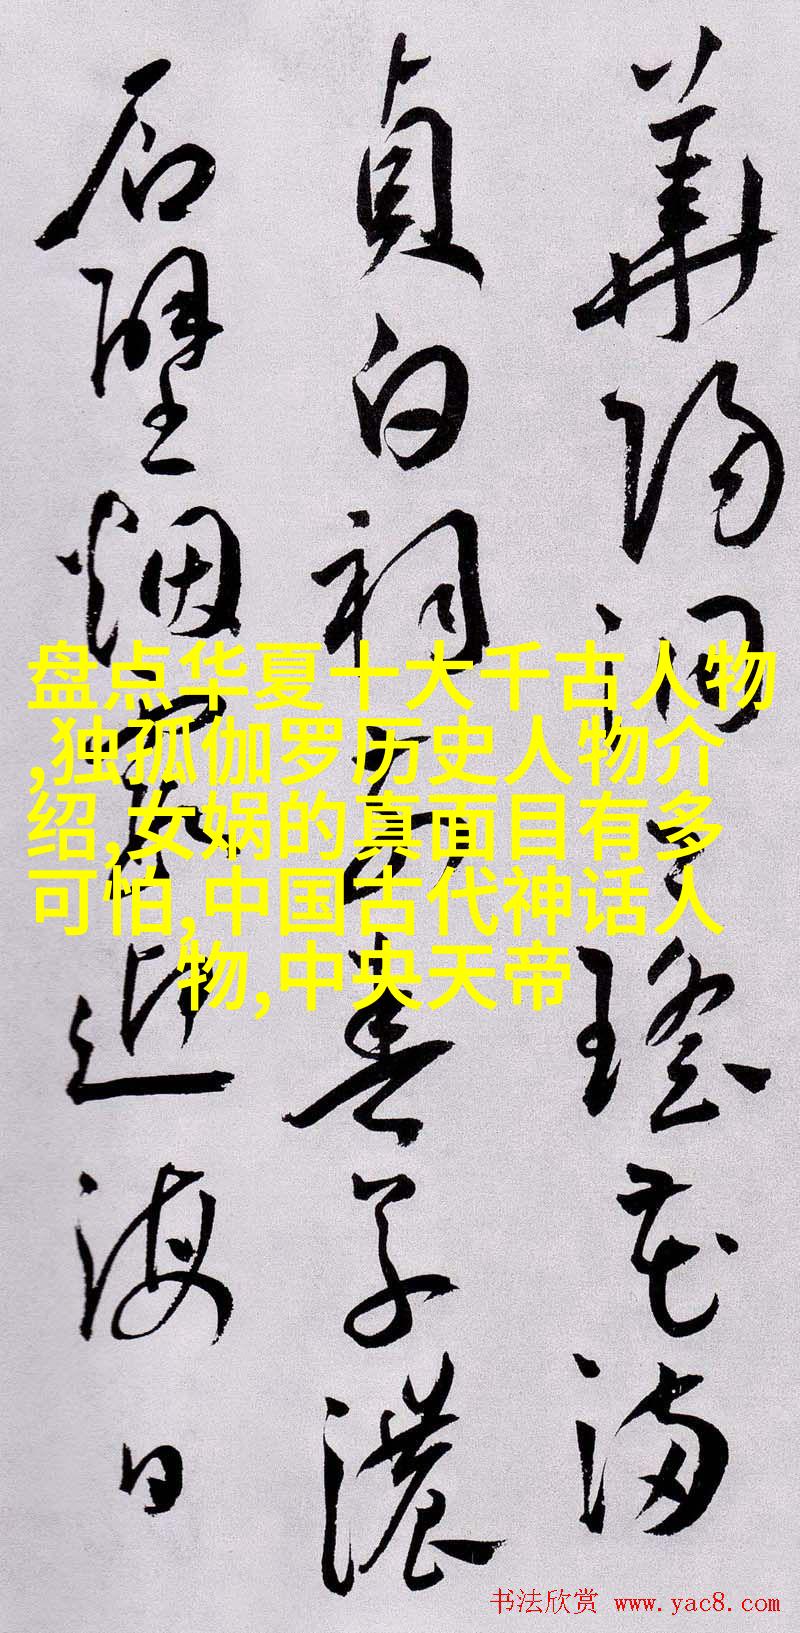 華陽洞瑤花滿
貞白祠前春草濃
石壁烟霞迎海日
盘点华夏十大千古人物
,独孤伽罗历史人物介
绍,女娲的真面目有多
可怕,中国古代神话人
物,中央天帝
书法欣赏 www.yac8.com